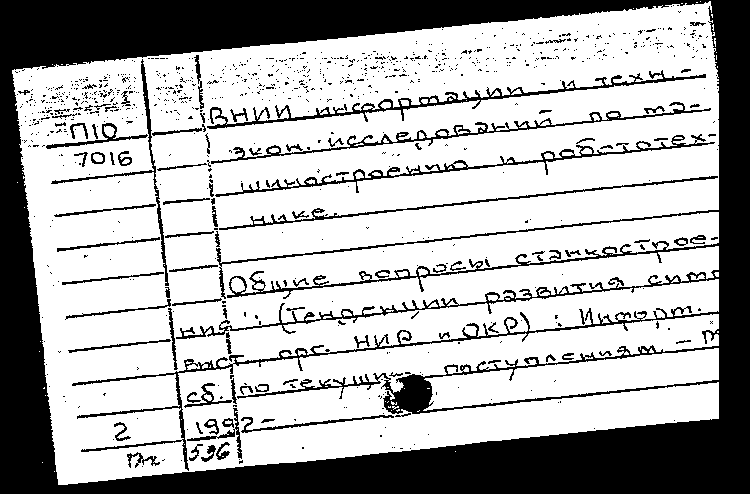 П10
7016
ВНИИ информации и техн.-
экон. исследований по ма-
шиностроению и робототех-
нике.
Общие вопросы станкострое-
ния : (Тенденции развития, симп
выст, орг. НИР и ОКР) : Информ.
сб. по текущим поступлениям. -
2 1992-
596